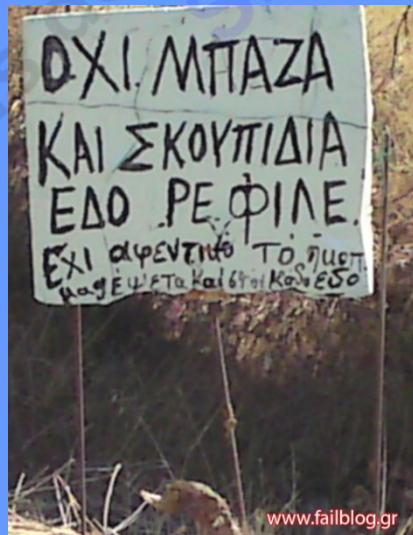 ΟΧΙ ΜΠΑΖΑ
ΚΑΙ ΣΚΟΥΠΙΔΙΑ
ΕΔΟ ΡΕ ΦΙΛΕ.
ΕΧΙ αφΕΝΤΙΚΟ ΤΟ
μαζΕΨΕΤΑ Και ΕΔΟ
www.failblog.gr